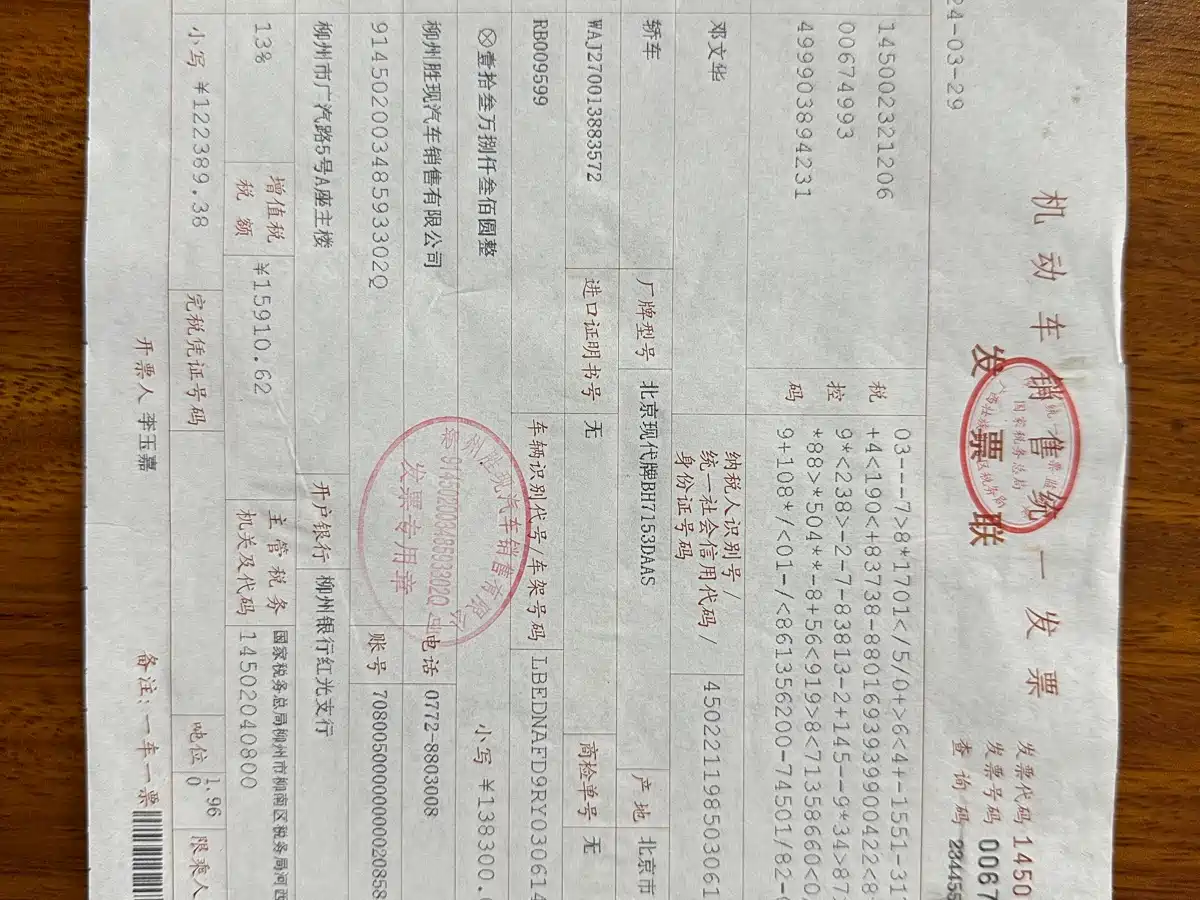 机动车销售统一发票
发票联
发票代码 1450
发票号码 0067
查询码
24-03-29
145002321206
00674993
499903894231
税控码
03---7>8*1701</5/0+>6<4+-1551-311
+4<190<+83738-8801693939900422<8
9*<238>-2-7-83813-2+145--9*34>87
*88>*504**-8+56<919>8<71358660<0
9+108*/<01-/<861356200-74501/82-
邓文华
纳税人识别号/
统一社会信用代码/
身份证号码
450221198503061
轿车
厂牌型号
北京现代牌BH7153DAAS
产地
北京市
WAJ270013883572
进口证明书号
无
商检单号
无
RB009599
车辆识别代号/车架号码
LBEDNAFD9RY030614
⊗壹拾叁万捌仟叁佰圆整
小写 ￥138300.
柳州胜现汽车销售有限公司
电话
0772-8803008
91450200348593302Q
账号
柳州市广汽路5号A座主楼
开户银行
柳州银行红光支行
13%
增值税
税额
￥15910.62
主管税务
机关及代码
国家税务总局柳州市柳南区税务局河西
14502040800
小写 ￥122389.38
完税凭证号码
吨位
1.96
0
限乘人
开票人 李玉嘉
备注:一车一票
州胜现汽车销售有限公
91450200348593302Q
发票专用章
国家税务总局